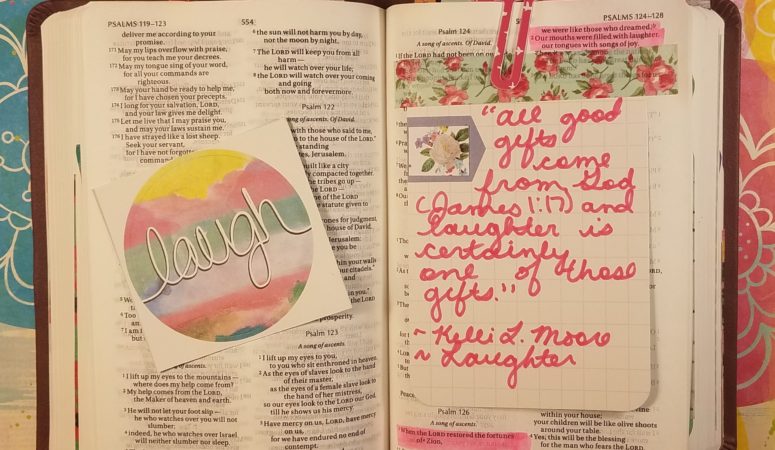 PSALMS 119–123
554
deliver me according to your
promise.
171 May my lips overflow with praise,
for you teach me your decrees.
172 May my tongue sing of your word,
for all your commands are
righteous.
173 May your hand be ready to help me,
for I have chosen your precepts.
174 I long for your salvation, LORD,
and your law gives me delight.
175 Let me live that I may praise you,
and may your laws sustain me.
176 I have strayed like a lost sheep.
Seek your servant,
for I have not forgotten
laugh
1 I lift up my eyes to the mountains —
where does my help come from?
2 My help comes from the LORD,
the Maker of heaven and earth.
3 He will not let your foot slip —
he who watches over you will
not slumber;
4 indeed, he who watches over Israel
will neither slumber nor sleep.
6 the sun will not harm you by day,
nor the moon by night.
7 The LORD will keep you from all
harm —
he will watch over your life;
8 the LORD will watch over your coming
and going
both now and forevermore.
Psalm 122
A song of ascents. Of David.
with those who said to me,
to the house of the LORD."
standing
Jerusalem.
built like a city
compacted together.
the tribes go up —
of the LORD —
statute given to
thrones for judgment,
house of David.
Jerusalem:
within your walls
your citadels."
in you."
the LORD
prosperity.
Psalm 123
A song of ascents.
1 I lift up my eyes to you,
to you who sit enthroned in heaven.
2 As the eyes of slaves look to the hand
of their master,
as the eyes of a female slave look to
the hand of her mistress,
so our eyes look to the LORD our God,
till he shows us his mercy.
3 Have mercy on us, LORD, have mercy
on us,
for we have endured no end of
contempt.
PSALMS 124–128
Psalm 124
A song of ascents. Of David.
1 If the LORD had not been on
"all good
gifts
come
from God
(James 1:17) and
laughter is
certainly
one of those
gifts."
~ Kelli L. Moore
~ Laughter
Psalm 126
A song of ascents.
1 When the LORD restored the fortunes
of Zion,
we were like those who dreamed.
2 Our mouths were filled with laughter,
our tongues with songs of joy.
within your house;
your children will be like olive shoots
around your table.
4 Yes, this will be the blessing
for the man who fears the LORD.